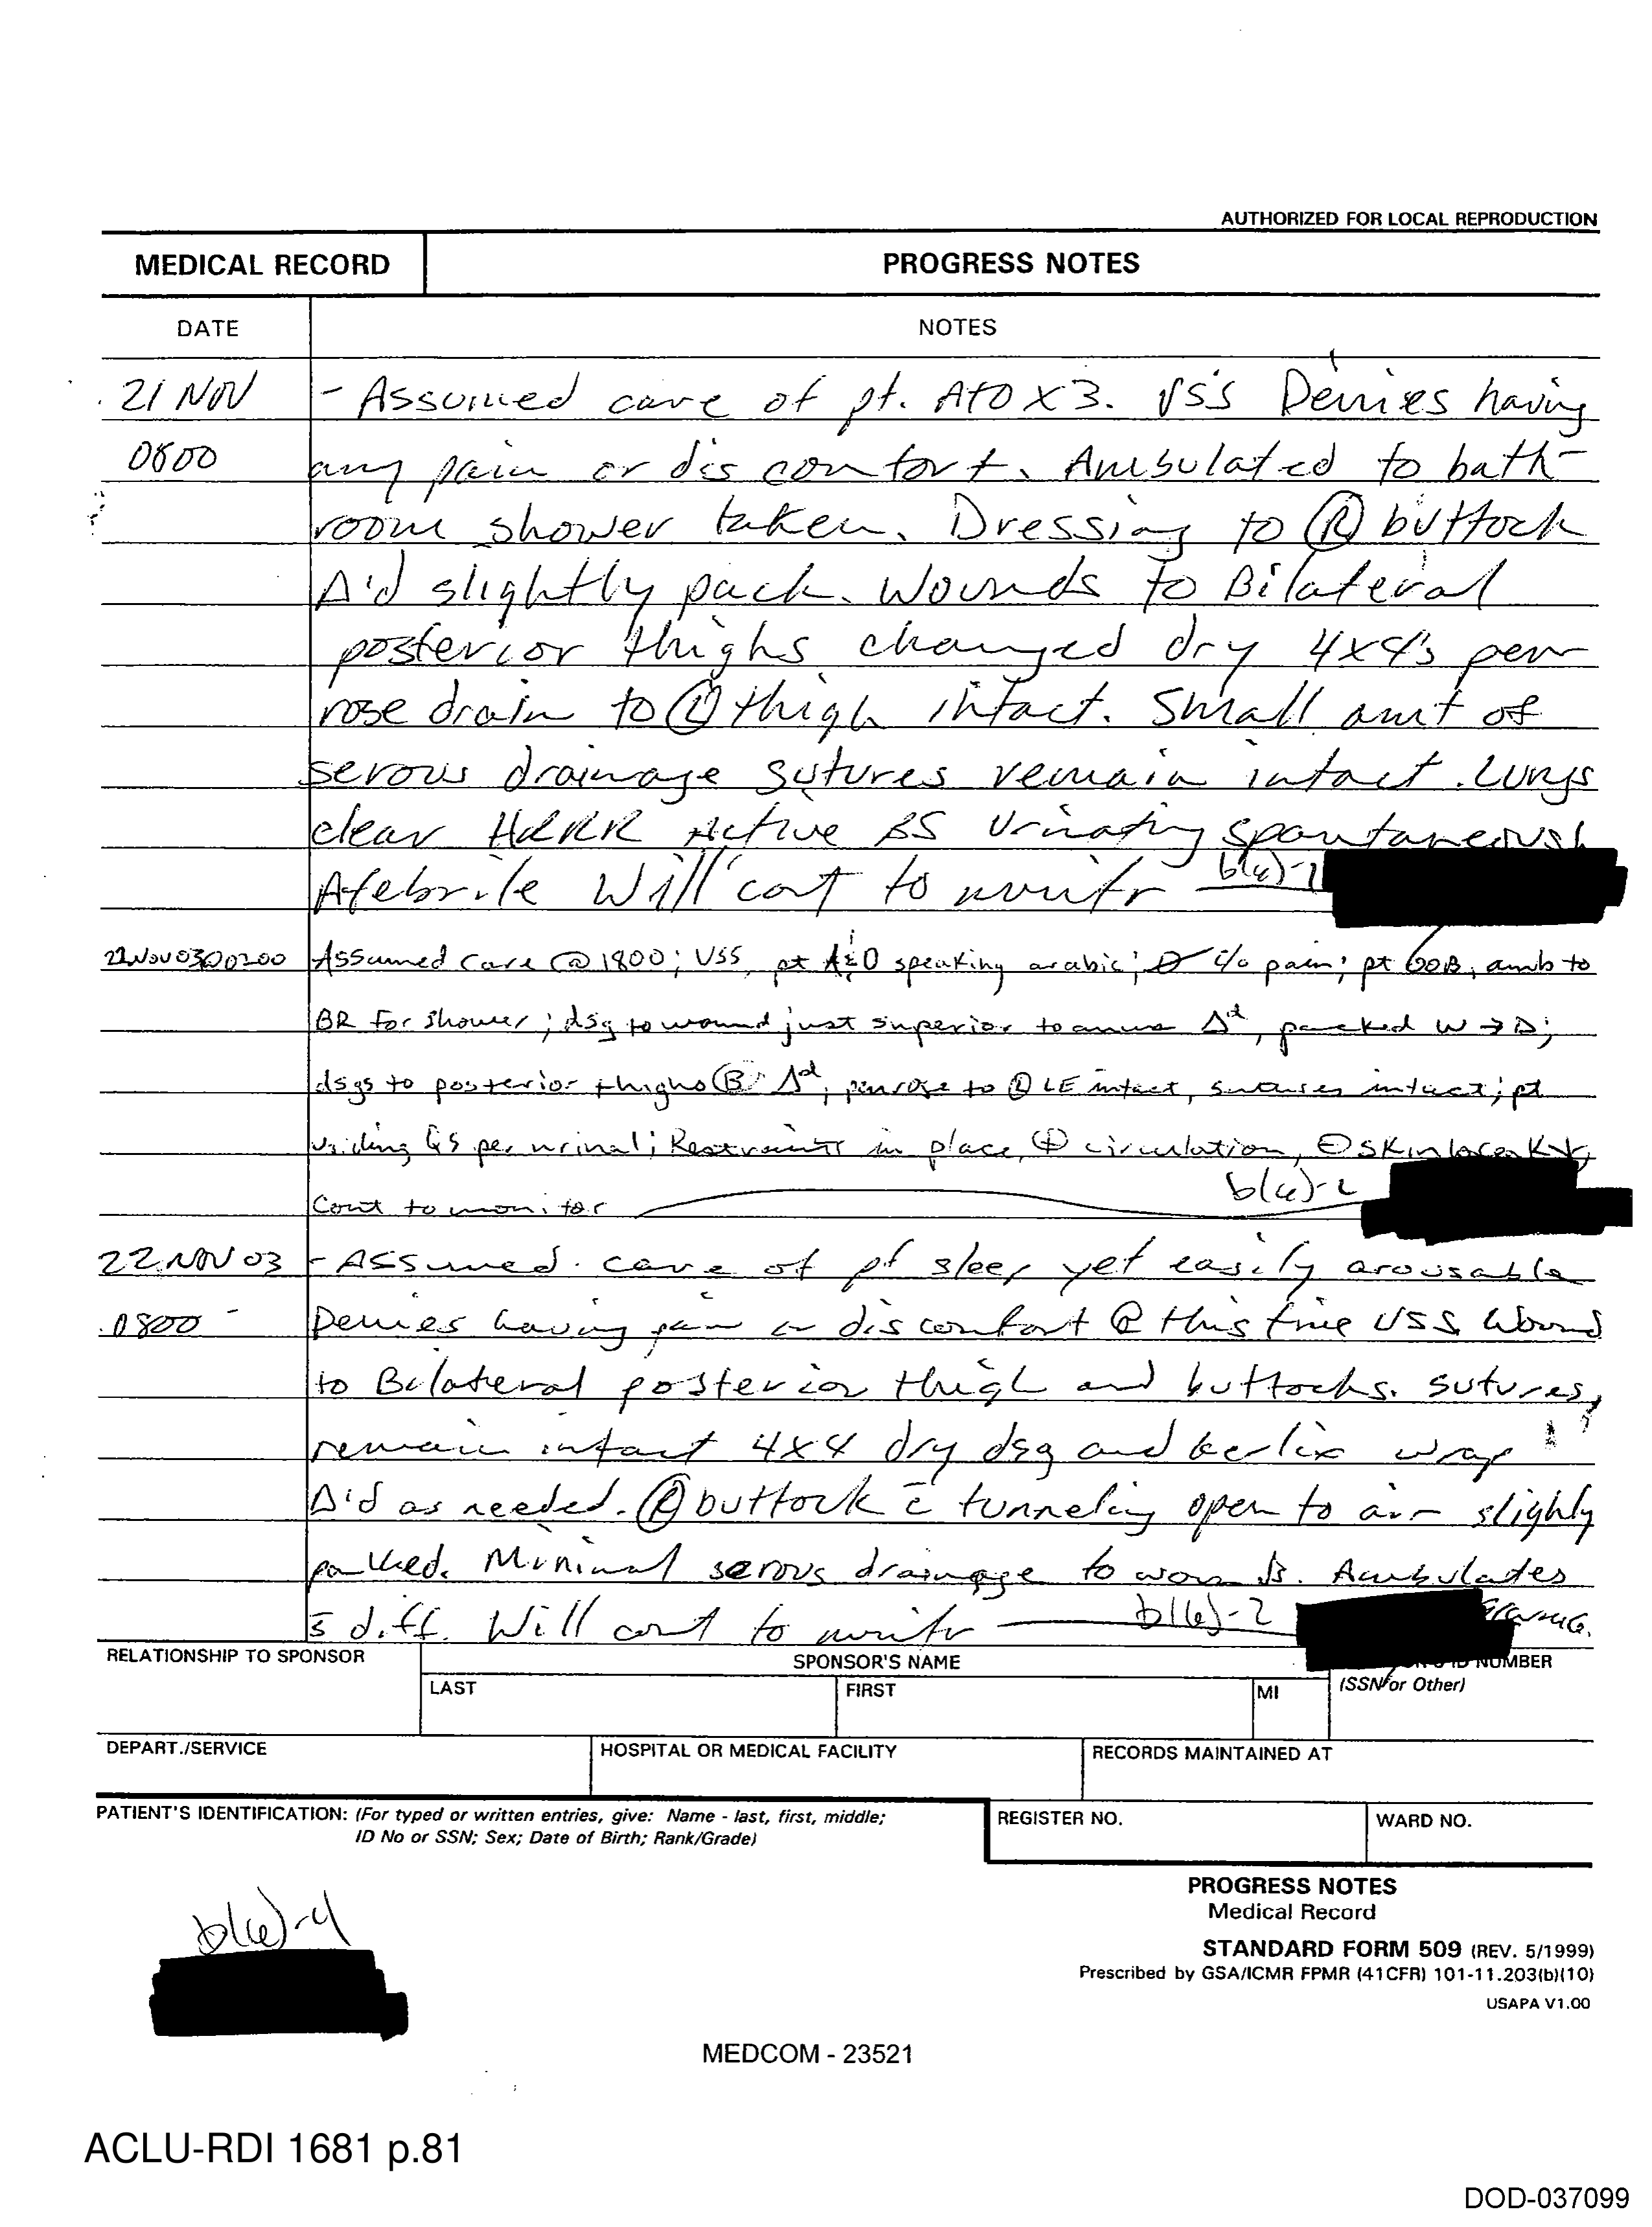 AUTHORIZED FOR LOCAL REPRODUCTION
MEDICAL RECORD PROGRESS NOTES
DATE NOTES
21 NOV - Assumed care of pt. A+O x 3. VSS Denies having
0800 any pain or discomfort. Ambulated to bath-
room shower taken. Dressing to Ⓡ buttock
Δ'd slightly pack. Wounds to Bilateral
posterior thighs changed dry 4x4's pen
rose drain to Ⓛ thigh intact. Small amt of
serous drainage sutures remain intact. Lungs
clear HRRR Active BS Urinating spontaneously
Afebrile Will cont to monitr b(6)-2
22Nov03 0200 Assumed care @ 1800; VSS, pt A&O speaking arabic; Ø c/o pain; pt OOB, amb to
BR for shower; dsg to wound just superior to anus Δd, packed W→D;
dsgs to posterior thighs Ⓑ Δd, penrose to Ⓛ LE intact, sutures intact; pt
voiding QS per urinal; Restraints in place, ⊕ circulation, ⊖ skin
Cont to monitor b(6)-2
22 NOV 03 - Assumed care of pt sleep yet easily arousable
0800 - Denies having pain or discomfort @ this time VSS Wound
to Bilateral posterior thigh and buttocks. sutures,
remain intact 4x4 dry dsg and kerlix wrap
Δ'd as needed. Ⓡ buttock c̄ tunneling open to air slighly
packed. Minimal serous drainage to wounds. Ambulates
s̄ diff. Will cont to monitr b(6)-2
RELATIONSHIP TO SPONSOR SPONSOR'S NAME ID NUMBER
LAST FIRST MI (SSN or Other)
DEPART./SERVICE HOSPITAL OR MEDICAL FACILITY RECORDS MAINTAINED AT
PATIENT'S IDENTIFICATION: (For typed or written entries, give: Name - last, first, middle; REGISTER NO. WARD NO.
ID No or SSN; Sex; Date of Birth; Rank/Grade)
PROGRESS NOTES
Medical Record
b(6)-4
STANDARD FORM 509 (REV. 5/1999)
Prescribed by GSA/ICMR FPMR (41CFR) 101-11.203(b)(10)
USAPA V1.00
MEDCOM - 23521
ACLU-RDI 1681 p.81
DOD-037099